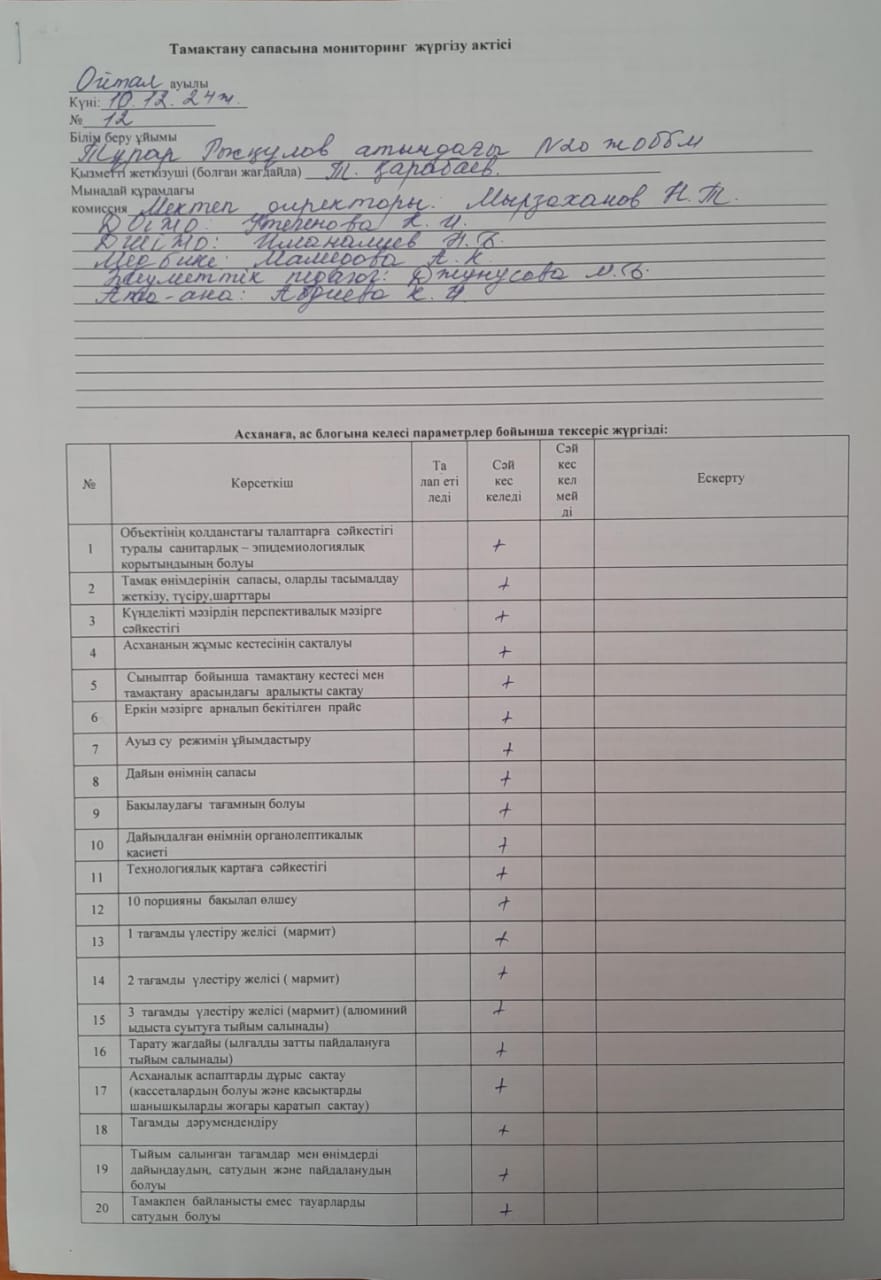 Тамақтану сапасына мониторинг жүргізу актісі
Ойтал ауылы
Күні: 10.12.24ж.
№ 12
Білім беру ұйымы
Тұрар Рысқұлов атындағы N20 жоббм
Қызметі жеткізуші (болған жағдайда) Т. Қарабаев.
Мынадай құрамдағы
комиссия Мектеп директоры: Мырзаханов Н.Т.
Утегенова К.И.
Иманалиев Н.Б.
Медбике: Мамедова А.К.
Әлеуметтік педагог: Джунусова М.Б.
Ата-ана: Абдиева К.И.
Асханаға, ас блогына келесі параметрлер бойынша тексеріс жүргізді:
№ Көрсеткіш Та лап еті леді Сәй кес келеді Сәй кес кел мей ді Ескерту
1 Объектінің қолданстағы талаптарға сәйкестігі
туралы санитарлық – эпидемиологиялық +
қорытындының болуы
2 Тамақ өнімдерінің сапасы, оларды тасымалдау +
жеткізу, түсіру,шарттары
3 Күнделікті мәзірдің перспективалық мәзірге +
сәйкестігі
4 Асхананың жұмыс кестесінің сакталуы +
5 Сыныптар бойынша тамақтану кестесі мен +
тамақтану арасындағы аралықты сақтау
6 Еркін мәзірге арналып бекітілген прайс +
7 Ауыз су режимін ұйымдастыру +
8 Дайын өнімнің сапасы +
9 Бақылаудағы тағамның болуы +
10 Дайындалған өнімнің органолептикалық +
қасиеті
11 Технологиялық картаға сәйкестігі +
12 10 порцияны бақылап өлшеу +
13 1 тағамды үлестіру желісі (мармит) +
14 2 тағамды үлестіру желісі ( мармит) +
15 3 тағамды үлестіру желісі (мармит) (алюминий +
ыдыста суытуга тыйым салынады)
16 Тарату жағдайы (ылғалды затты пайдалануға +
тыйым салынады)
17 Асханалық аспаптарды дұрыс сақтау
(кассеталардың болуы және қасықтарды +
шанышқыларды жоғары қаратып сақтау)
18 Тағамды дәрумендендіру +
19 Тыйым салынған тағамдар мен өнімдерді
дайындаудың, сатудын және пайдаланудын +
болуы
20 Тамақпен байланысты емес тауарларды +
сатудын болуы